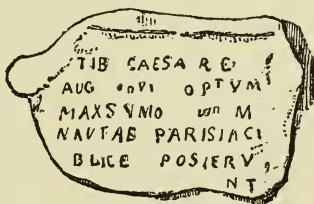 TIB CAESARE
AUG OPTVM
MAXSVMO M
NAVTAE PARISIACI
BLICE POSIERV
NT